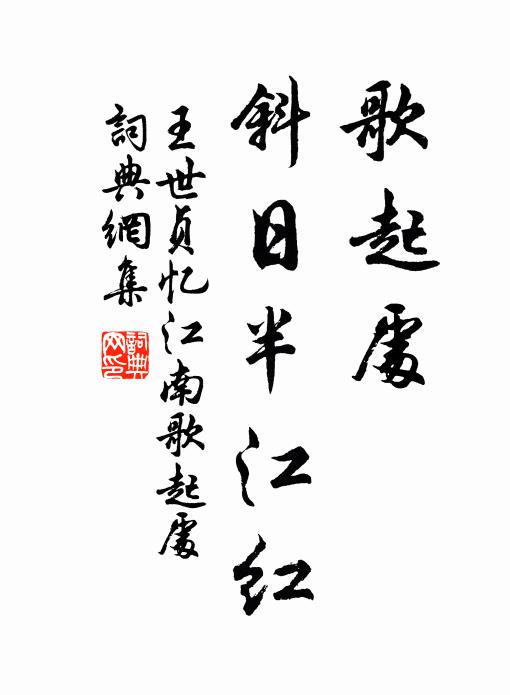 歌起處
斜日半江紅
王世貞忆江南歌起處
詞典網集
詞典網印